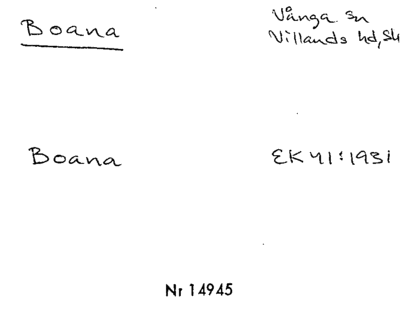 Boana
Vånga sn
Villands hd, Sk
Boana
EK 41:1931
Nr 14945